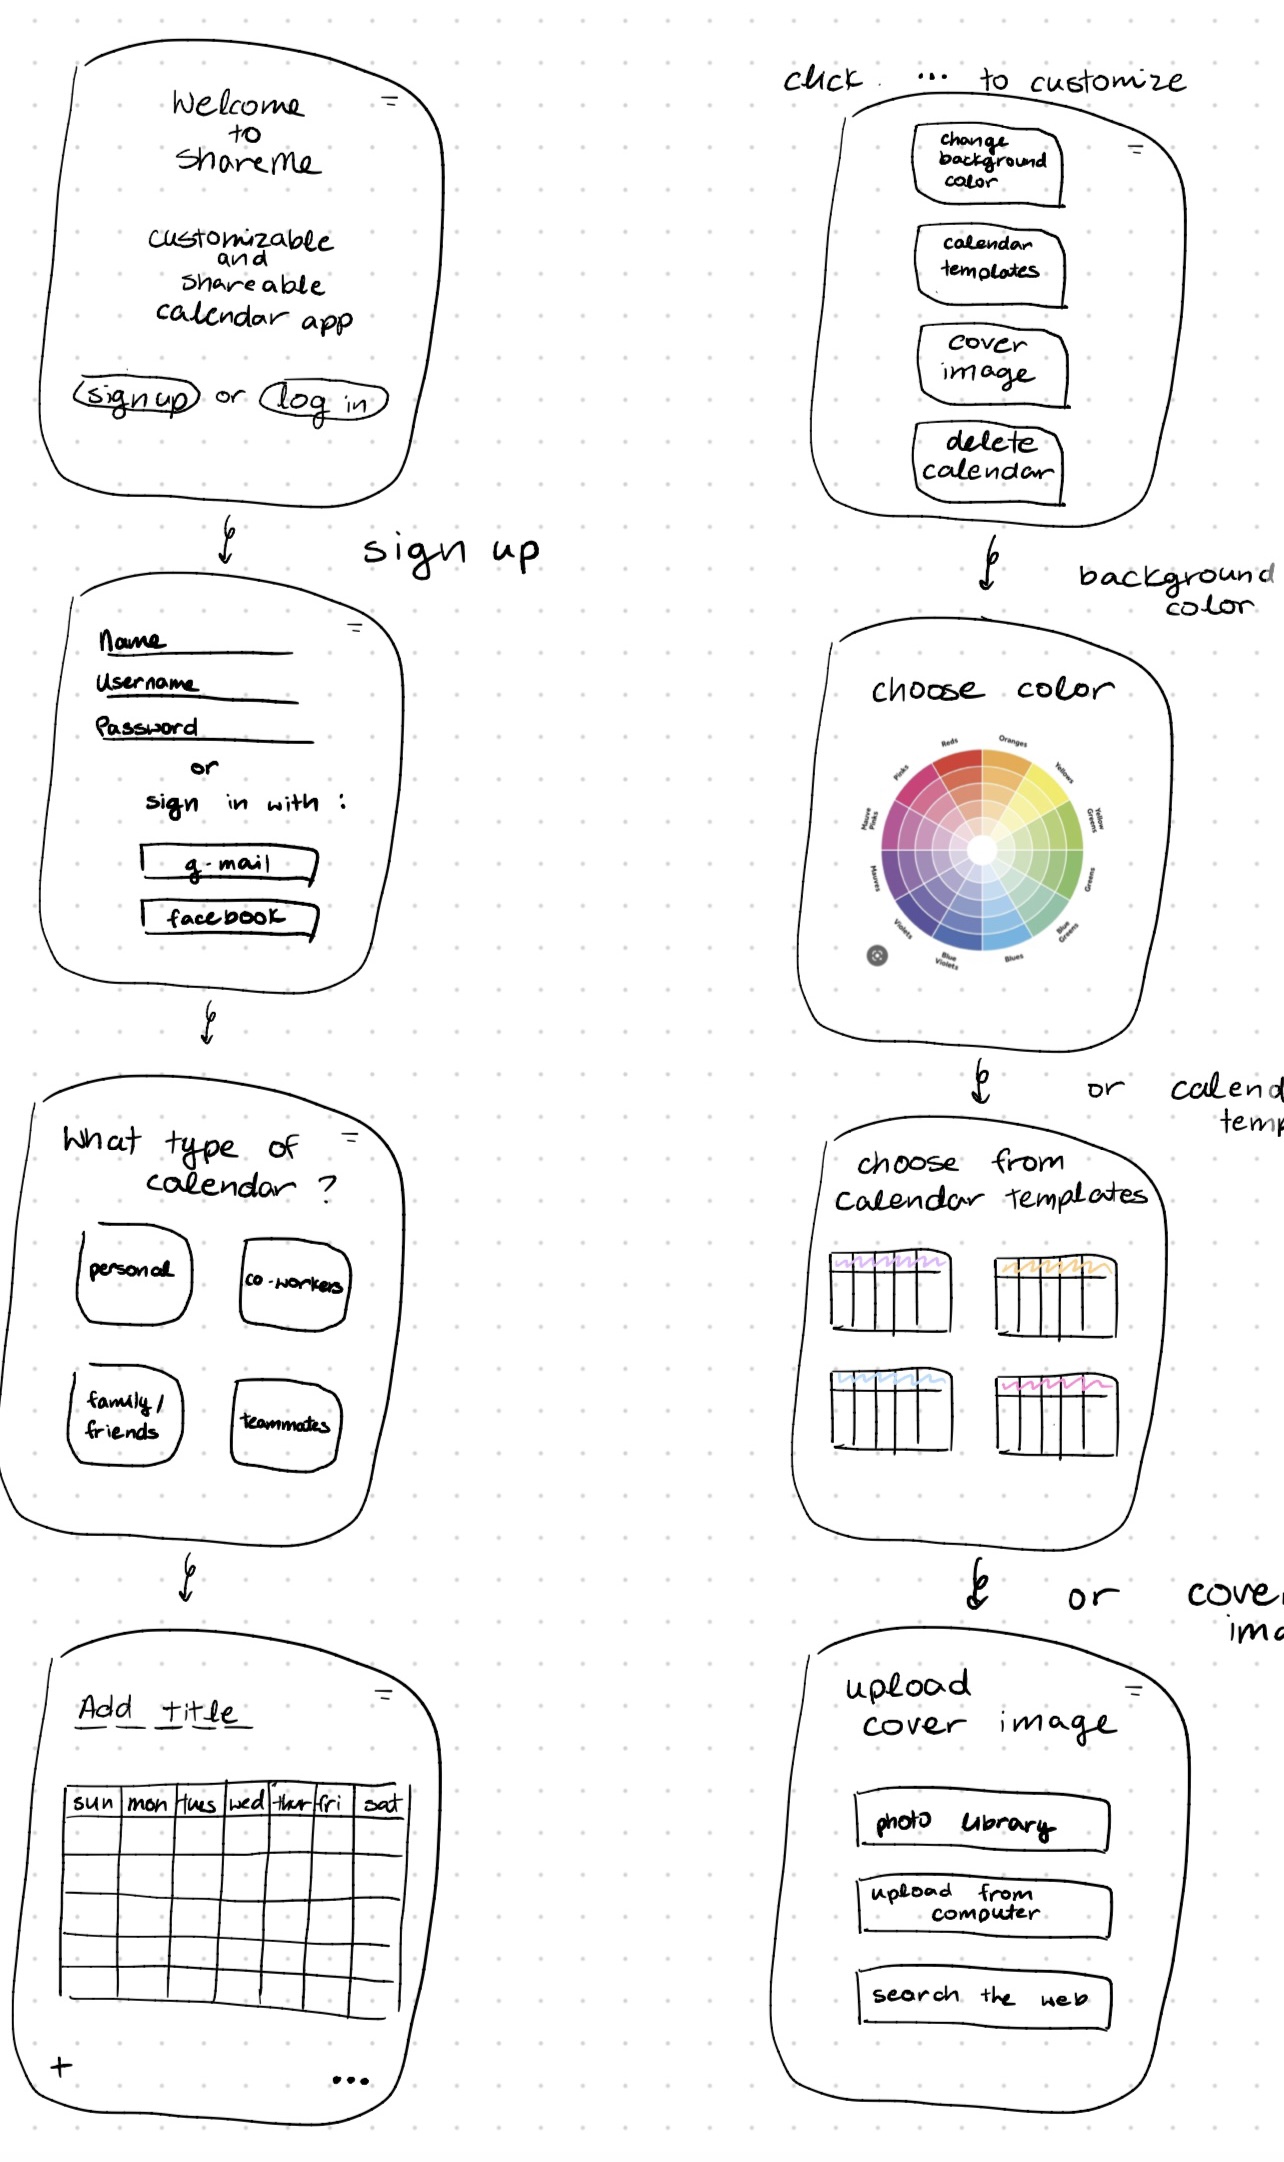 Welcome
to
shareme
customizable
and
shareable
calendar app
sign up or log in
sign up
Name
Username
Password
or
sign in with :
g-mail
facebook
What type of
calendar ?
personal
co-workers
family/
friends
teammates
Add title
sun mon tues wed thur fri sat
+
...
click ... to customize
change
background
color
calendar
templates
cover
image
delete
calendar
background
color
choose color
Reds
Oranges
Yellows
Yellow
Greens
Greens
Blue
Greens
Blues
Blue
Violets
Violets
Mauves
Mauve
Pinks
Pinks
or calend
temp
choose from
calendar templates
or cove
ima
upload
cover image
photo library
upload from
computer
search the web